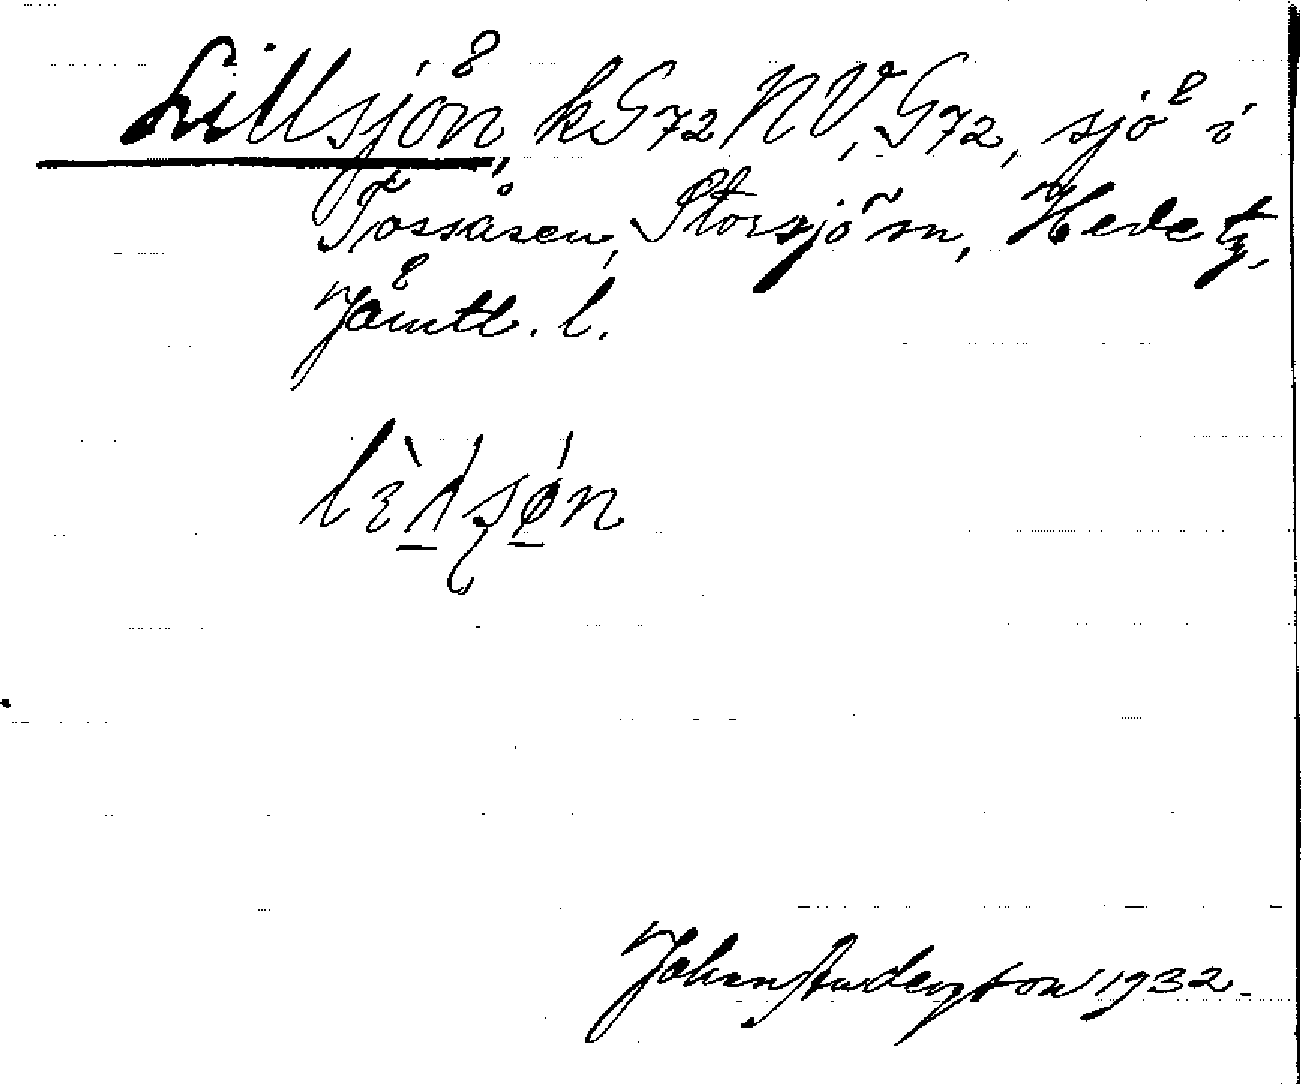 Lillsjön, kG72NV, G72, sjö i
Tossåsen, Storsjö sn, Hede tg,
Jämtl. l.
Johan Anderzon 1932.